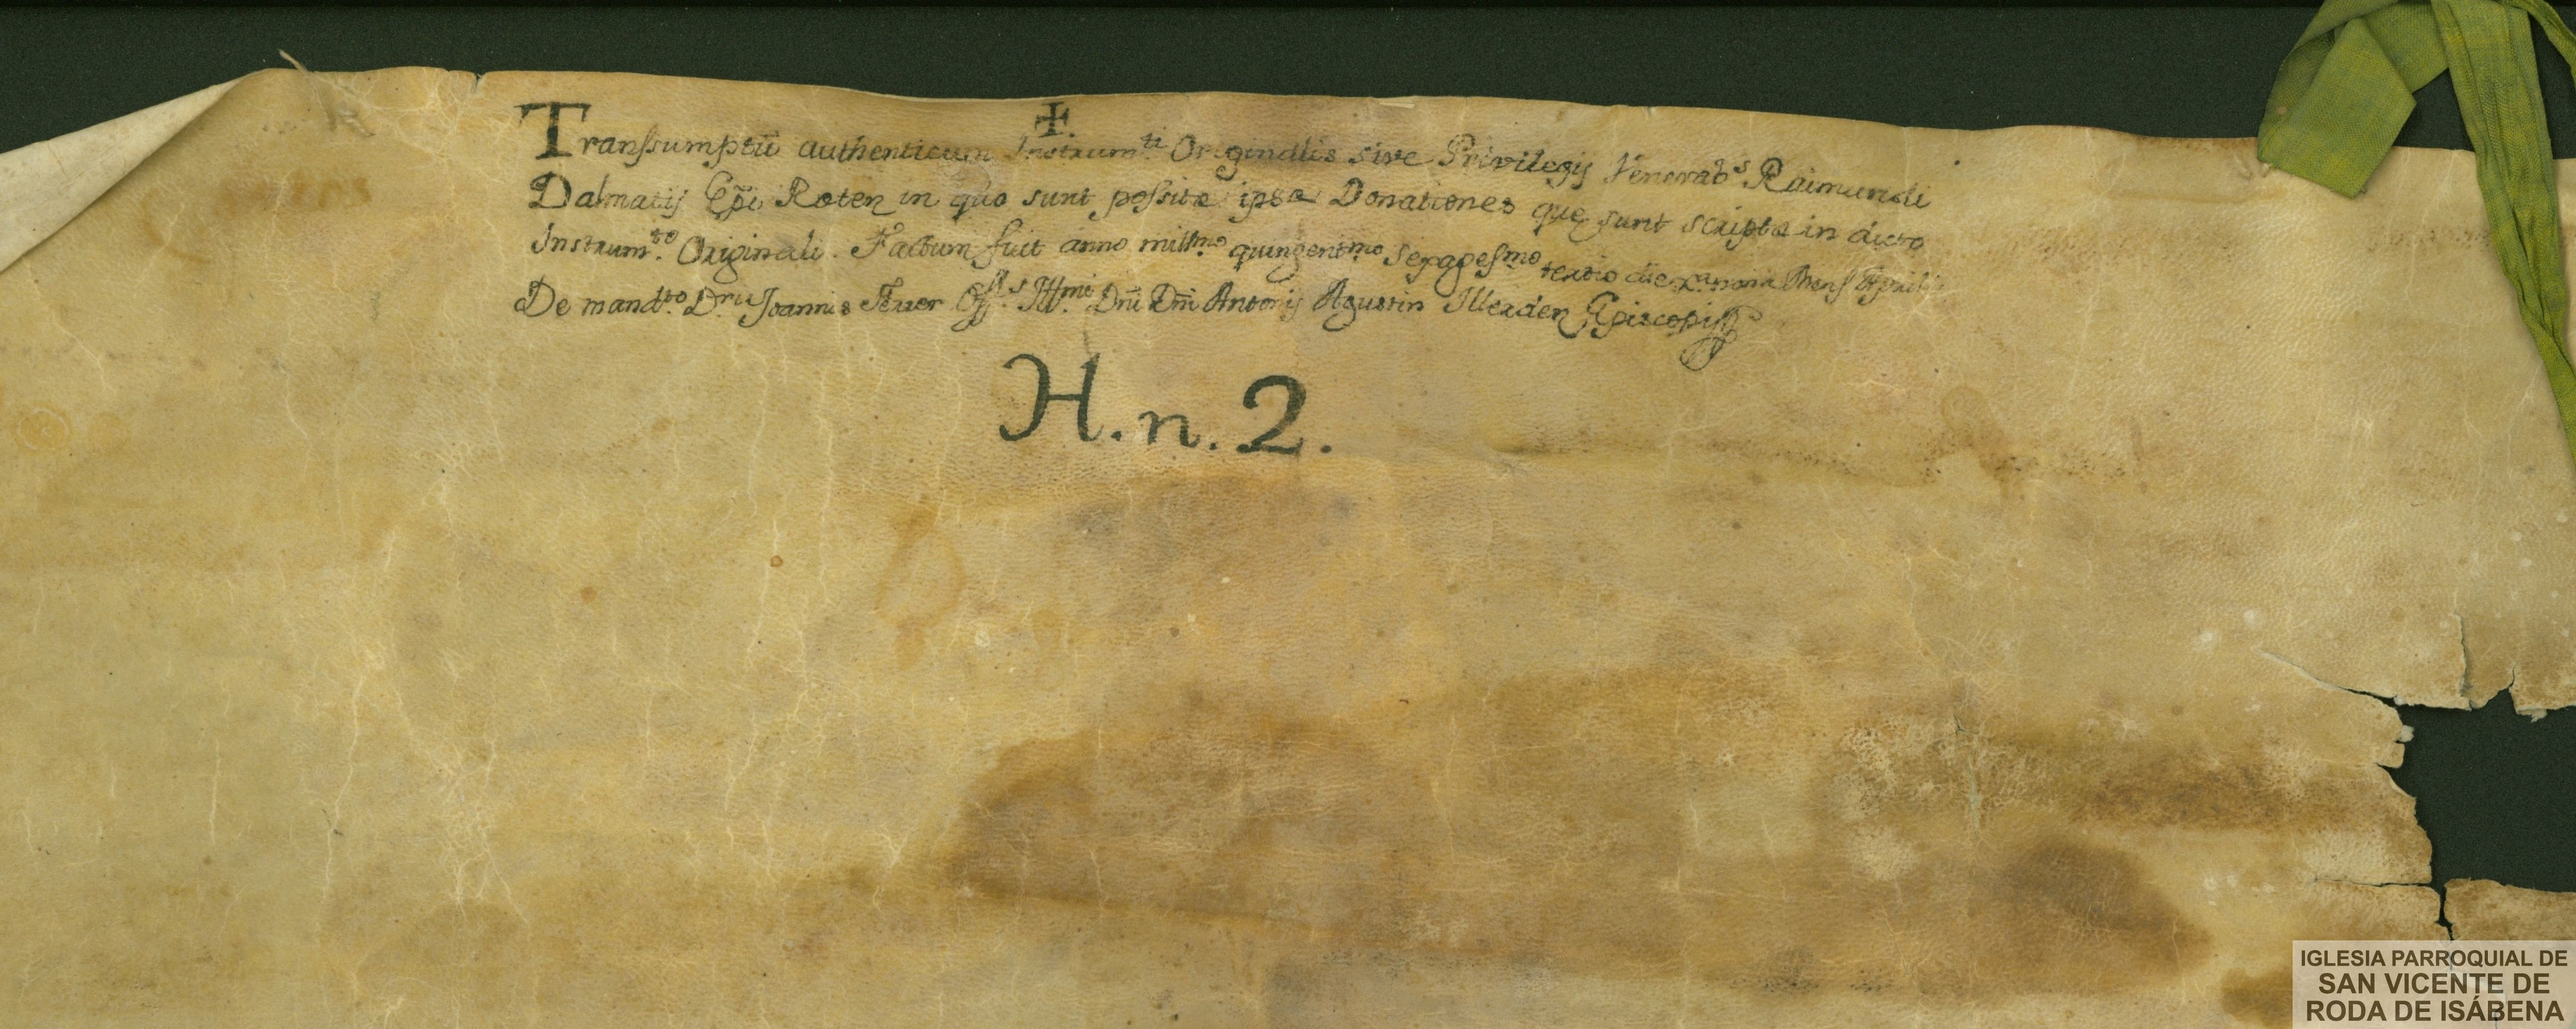 ✠.
Transsumptũ authenticum Instrum.ti Originalis sive Privilegij Venerab.s Raimundi
Dalmatij Epĩ Roten in quo sunt possite ipse Donationes que sunt scripte in dicto
Instrum.to Originali. Factum fuit anno mill.mo quingent.mo sexages.mo tertio die nona Mens Aprilis
De mand.to D.ris Joannis Ferrer Off.s Ill.mi Dñi Dñi Antonij Agustin Illerden Episcopi
H. n. 2.
IGLESIA PARROQUIAL DE
SAN VICENTE DE
RODA DE ISÁBENA